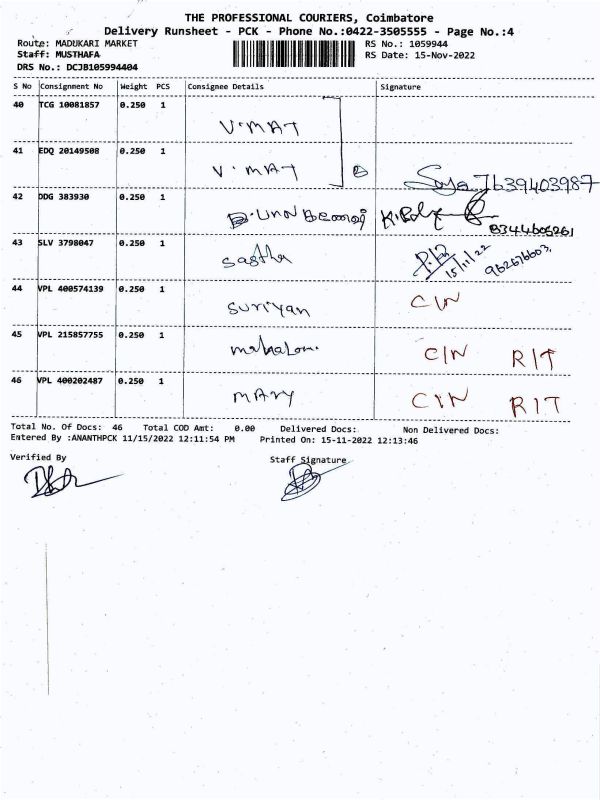 THE PROFESSIONAL COURIERS, Coimbatore
Delivery Runsheet - PCK - Phone No.:0422-3505555 - Page No.:4
Route: MADUKARI MARKET RS No.: 1059944
Staff: MUSTHAFA RS Date: 15-Nov-2022
DRS No.: DCJB105994404
S No Consignment No Weight PCS Consignee Details Signature
40 TCG 10081857 0.250 1
V.MAT
41 EDQ 20149508 0.250 1
V.MAT 2 7639403987
42 DDG 383930 0.250 1
8344605261
43 SLV 3798047 0.250 1
sastha 15/11/22
44 VPL 400574139 0.250 1
suriyan C/N
45 VPL 215857755 0.250 1
C/N R/T
46 VPL 400202487 0.250 1
MARY C/N R/T
Total No. Of Docs: 46 Total COD Amt: 0.00 Delivered Docs: Non Delivered Docs:
Entered By :ANANTHPCK 11/15/2022 12:11:54 PM Printed On: 15-11-2022 12:13:46
Verified By Staff Signature